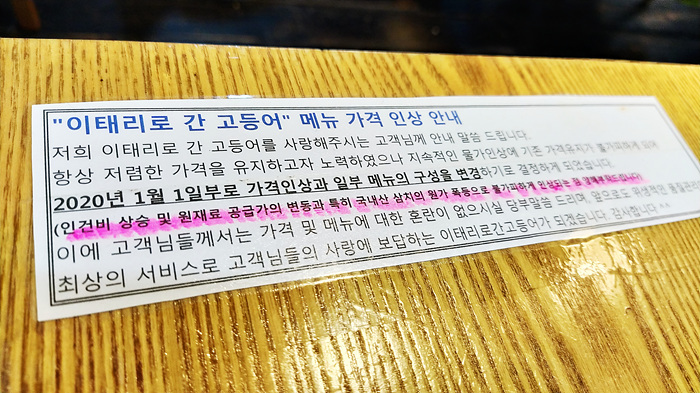 "이태리로 간 고등어" 메뉴 가격 인상 안내
저희 이태리로 간 고등어를 사랑해주시는 고객님께 안내 말씀 드립니다.
항상 저렴한 가격을 유지하고자 노력하였으나 지속적인 물가인상에 기존 가격유지가 불가피하게 되어
2020년 1월 1일부로 가격인상과 일부 메뉴의 구성을 변경하기로 결정하게 되었습니다.
(인건비 상승 및 원재료 공급가의 변동과 특히 국내산 삼치의 원가 폭등으로 불가피하게 인상되는
이에 고객님들께서는 가격 및 메뉴에 대한 혼란이 없으시실 당부말씀 드리며, 앞으로도
최상의 서비스로 고객님들의 사랑에 보답하는 이태리로간고등어가 되겠습니다. 감사합니다.^^